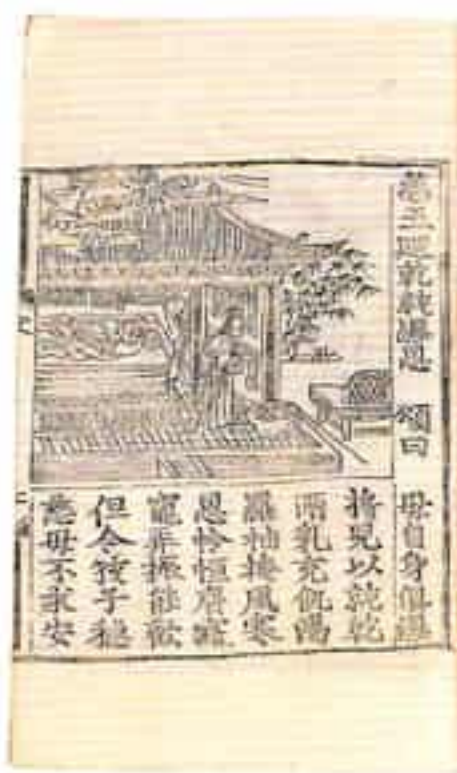 第五廻乾就濕恩 頌曰 母自身俱濕
將兒以就乾
兩乳充飢渴
羅袖掩風寒
恩怜恒廢寢
寵弄振能歡
但令孩子穩
慈母不求安